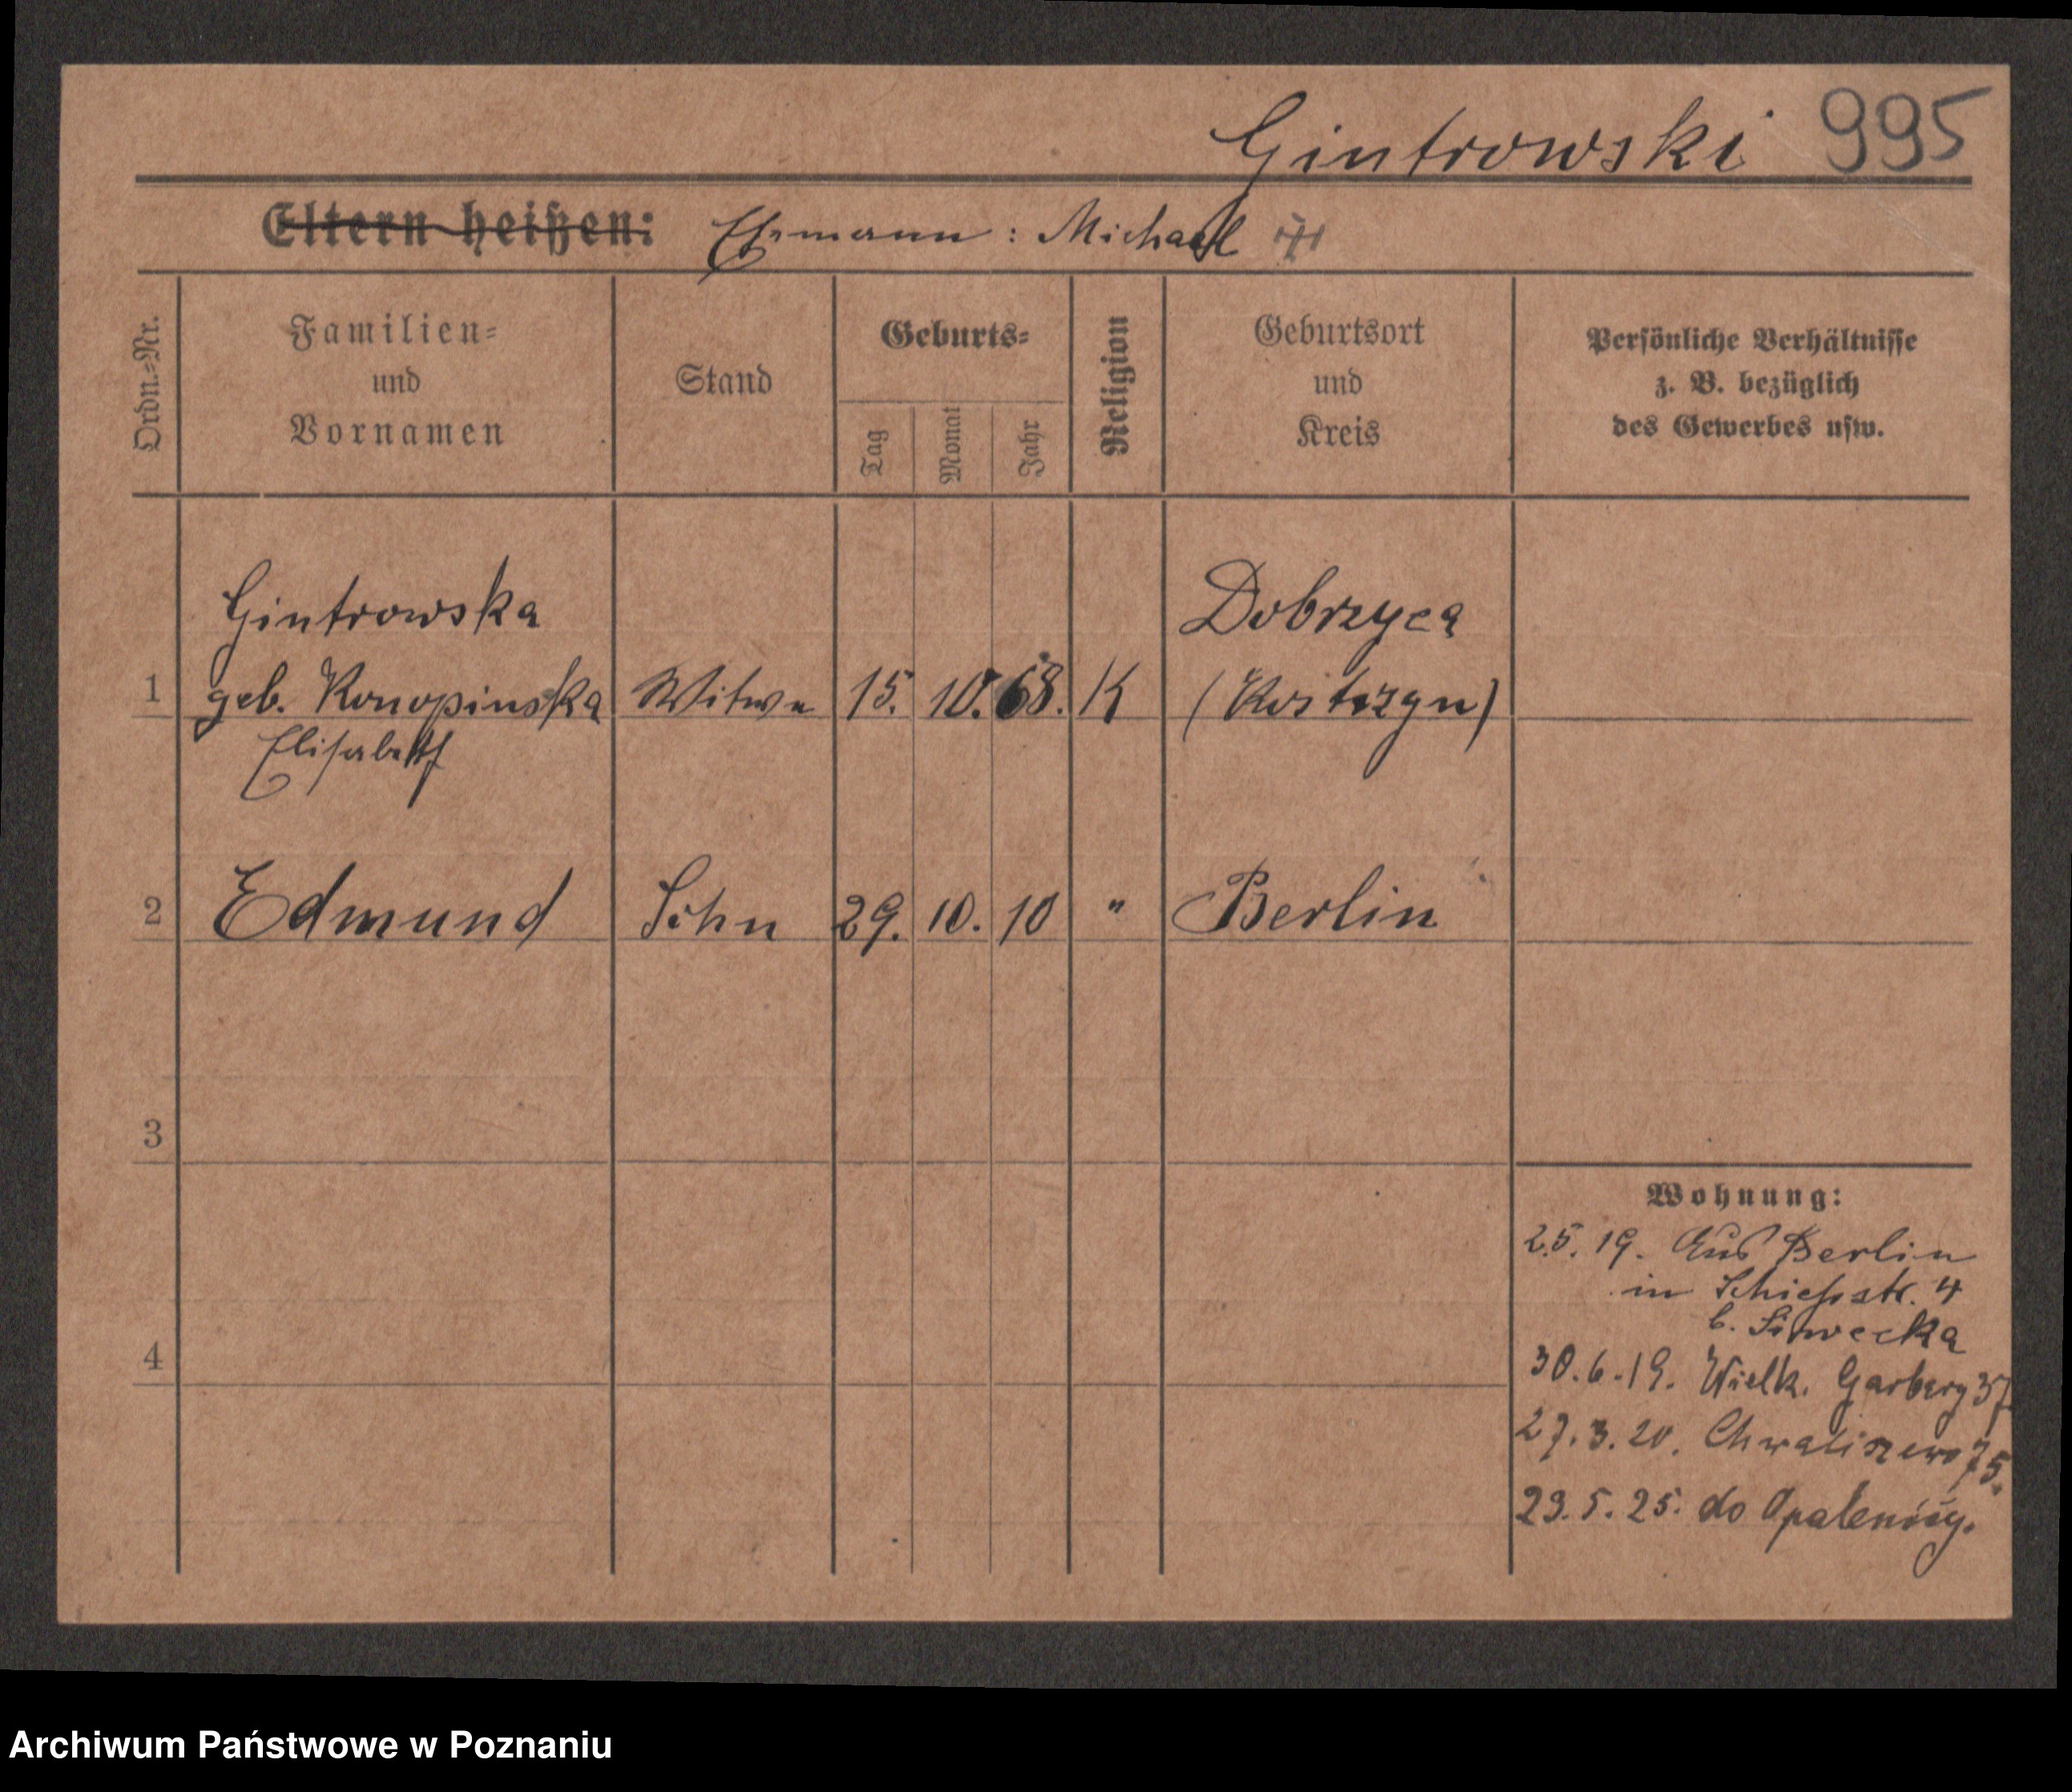 Gintrowski 995
Eltern heißen: Ehemann: Michael
Ordn.-Nr.
Familien-
und
Vornamen
Stand
Geburts-
Tag
Monat
Jahr
Religion
Geburtsort
und
Kreis
Persönliche Verhältnisse
z. B. bezüglich
des Gewerbes usw.
Gintrowska
Dobrzyca
1 geb. Konopinska Witwe 15. 10. 68. K (Kostrzyn)
Elisabeth
2 Edmund Sohn 29. 10. 10 " Berlin
3
4
Wohnung:
2.5.19. Aus Berlin
in Schießstr. 4
b. Siwecka
30.6.19. Wielk. Garbary 37
27.3.20. Chwaliszewo 75.
29.5.25. do Opalenicy.
Archiwum Państwowe w Poznaniu